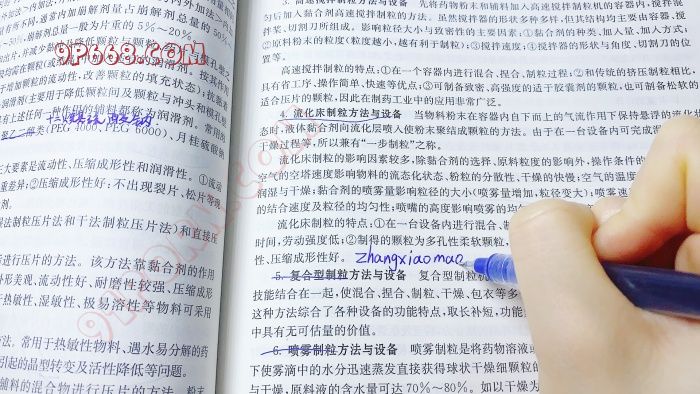 内外加法>
为内加法>
剂有所不同,通常内加崩解剂量占崩解总量的50%
~50%,崩解总量一般为片重的5%~20%。
9P668.COM
与润滑剂(主要用于降低颗粒间及颗粒与冲头和模孔
有上述任何一种作用的辅料都称为润滑剂。常用的
聚乙二醇类(PEG 4000、PEG 6000)、月桂硫酸
三大要素是流动性、压缩成形性和润滑性。①流动
重差异;②压缩成形性好:不出现裂片、松片等
剂。
湿法制粒压片法和干法制粒压片法)和直接压
后进行压片的方法。该方法靠黏合剂的作用
外形美观、流动性好、耐磨性较强、压缩成形
于热敏性、湿敏性、极易溶性等物料可采用
方法。常用于热敏性物料、遇水易分解的药
引起的晶型转变及活性降低等问题。
辅料的混合物进行压片的方法。粉末
3. 高速搅拌制粒方法与设备 先将药物粉末和辅料加入高速搅拌制粒机的容器内,搅拌混
匀后加入黏合剂高速搅拌制粒的方法。虽然搅拌器的形状多种多样,但其结构均主要由容器、搅
拌桨、切割刀所组成。影响粒径大小与致密性的主要因素:①黏合剂的种类、加入量、加入方式;
②原料粉末的粒度(粒度越小,越有利于制粒);③搅拌速度;④搅拌器的形状与角度、切割刀的位
置等。
高速搅拌制粒的特点:①在一个容器内进行混合、捏合、制粒过程;②和传统的挤压制粒相比,
具有省工序、操作简单、快速等优点;③可制备致密、高强度的适于胶囊剂的颗粒,也可制备松软的
适合压片的颗粒,因此在制药工业中的应用非常广泛。
4. 流化床制粒方法与设备 当物料粉末在容器内自下而上的气流作用下保持悬浮的流化状
态时,液体黏合剂向流化层喷入使粉末聚结成颗粒的方法。由于在一台设备内可完成混
干燥过程等,所以兼有“一步制粒”之称。
流化床制粒的影响因素较多,除黏合剂的选择、原料粒度的影响外,操作条件的
空气的空塔速度影响物料的流态化状态、粉粒的分散性、干燥的快慢;空气的温度
润湿与干燥;黏合剂的喷雾量影响粒径的大小(喷雾量增加,粒径变大);喷雾速
的结合速度及粒径的均匀性;喷嘴的高度影响喷雾的均
流化床制粒的特点:①在一台设备内进行混合、制
时间、劳动强度低;②制得的颗粒为多孔性柔软颗粒,
性、压缩成形性好。 zhangxiaomao
5. 复合型制粒方法与设备 复合型制粒机
技能结合在一起,使混合、捏合、制粒、干燥、包衣等多
这种方法综合了各种设备的功能特点,取长补短,功能
中具有无可估量的价值。
6. 喷雾制粒方法与设备 喷雾制粒是将药物溶液或
下使雾滴中的水分迅速蒸发直接获得球状干燥细颗粒的
与干燥,原料液的含水量可达70%~80%。如以干燥为